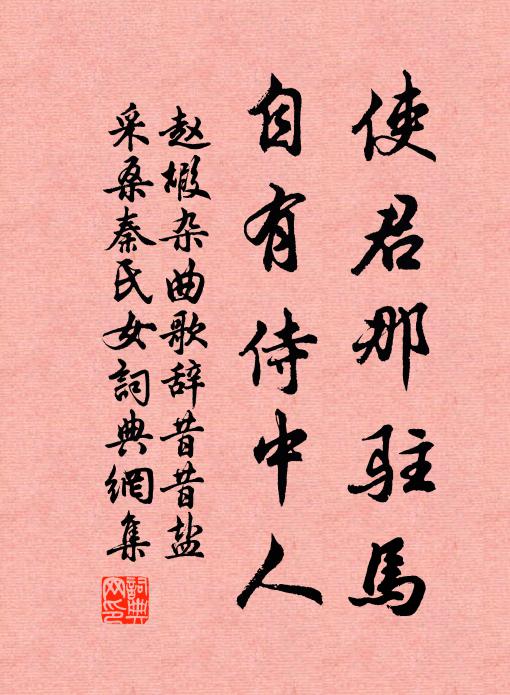 使君那驻馬
自有侍中人
赵嘏杂曲歌辞昔昔盐
采桑秦氏女詞典網集
詞典
网